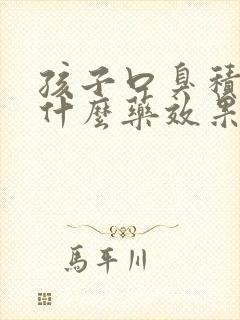 孩子口臭積
什麼藥效果
馬平川